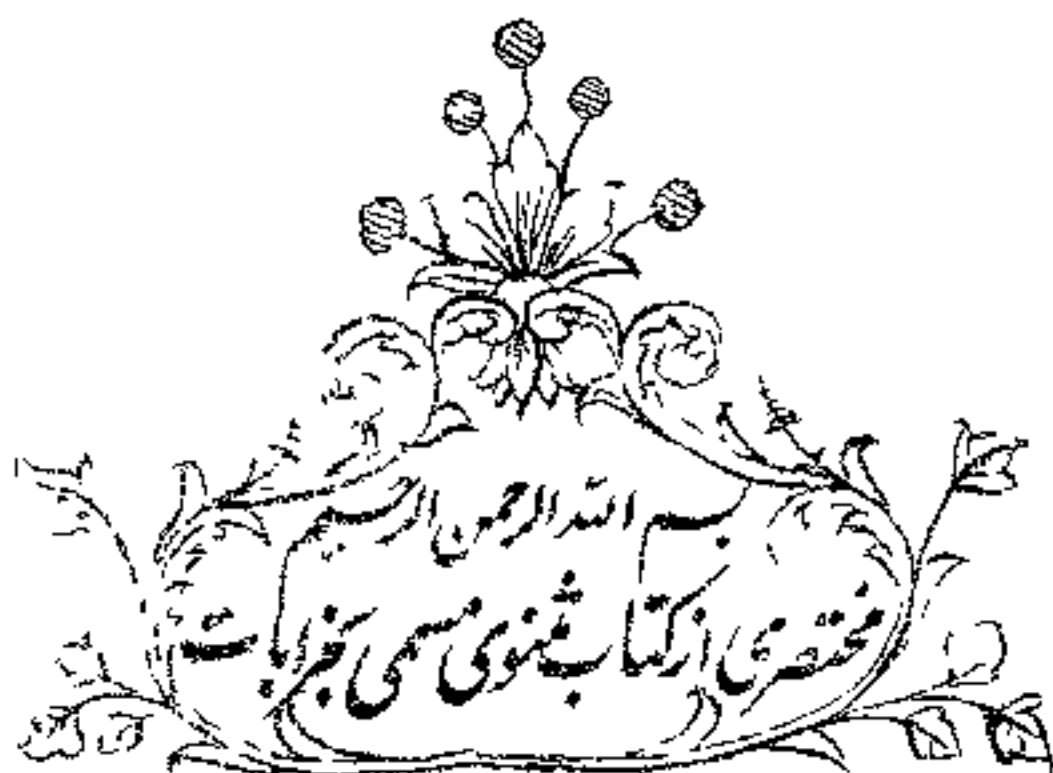 بسم الله الرحمن الرحیم
مختصری از کتاب مثنوی مسمی بخرابات